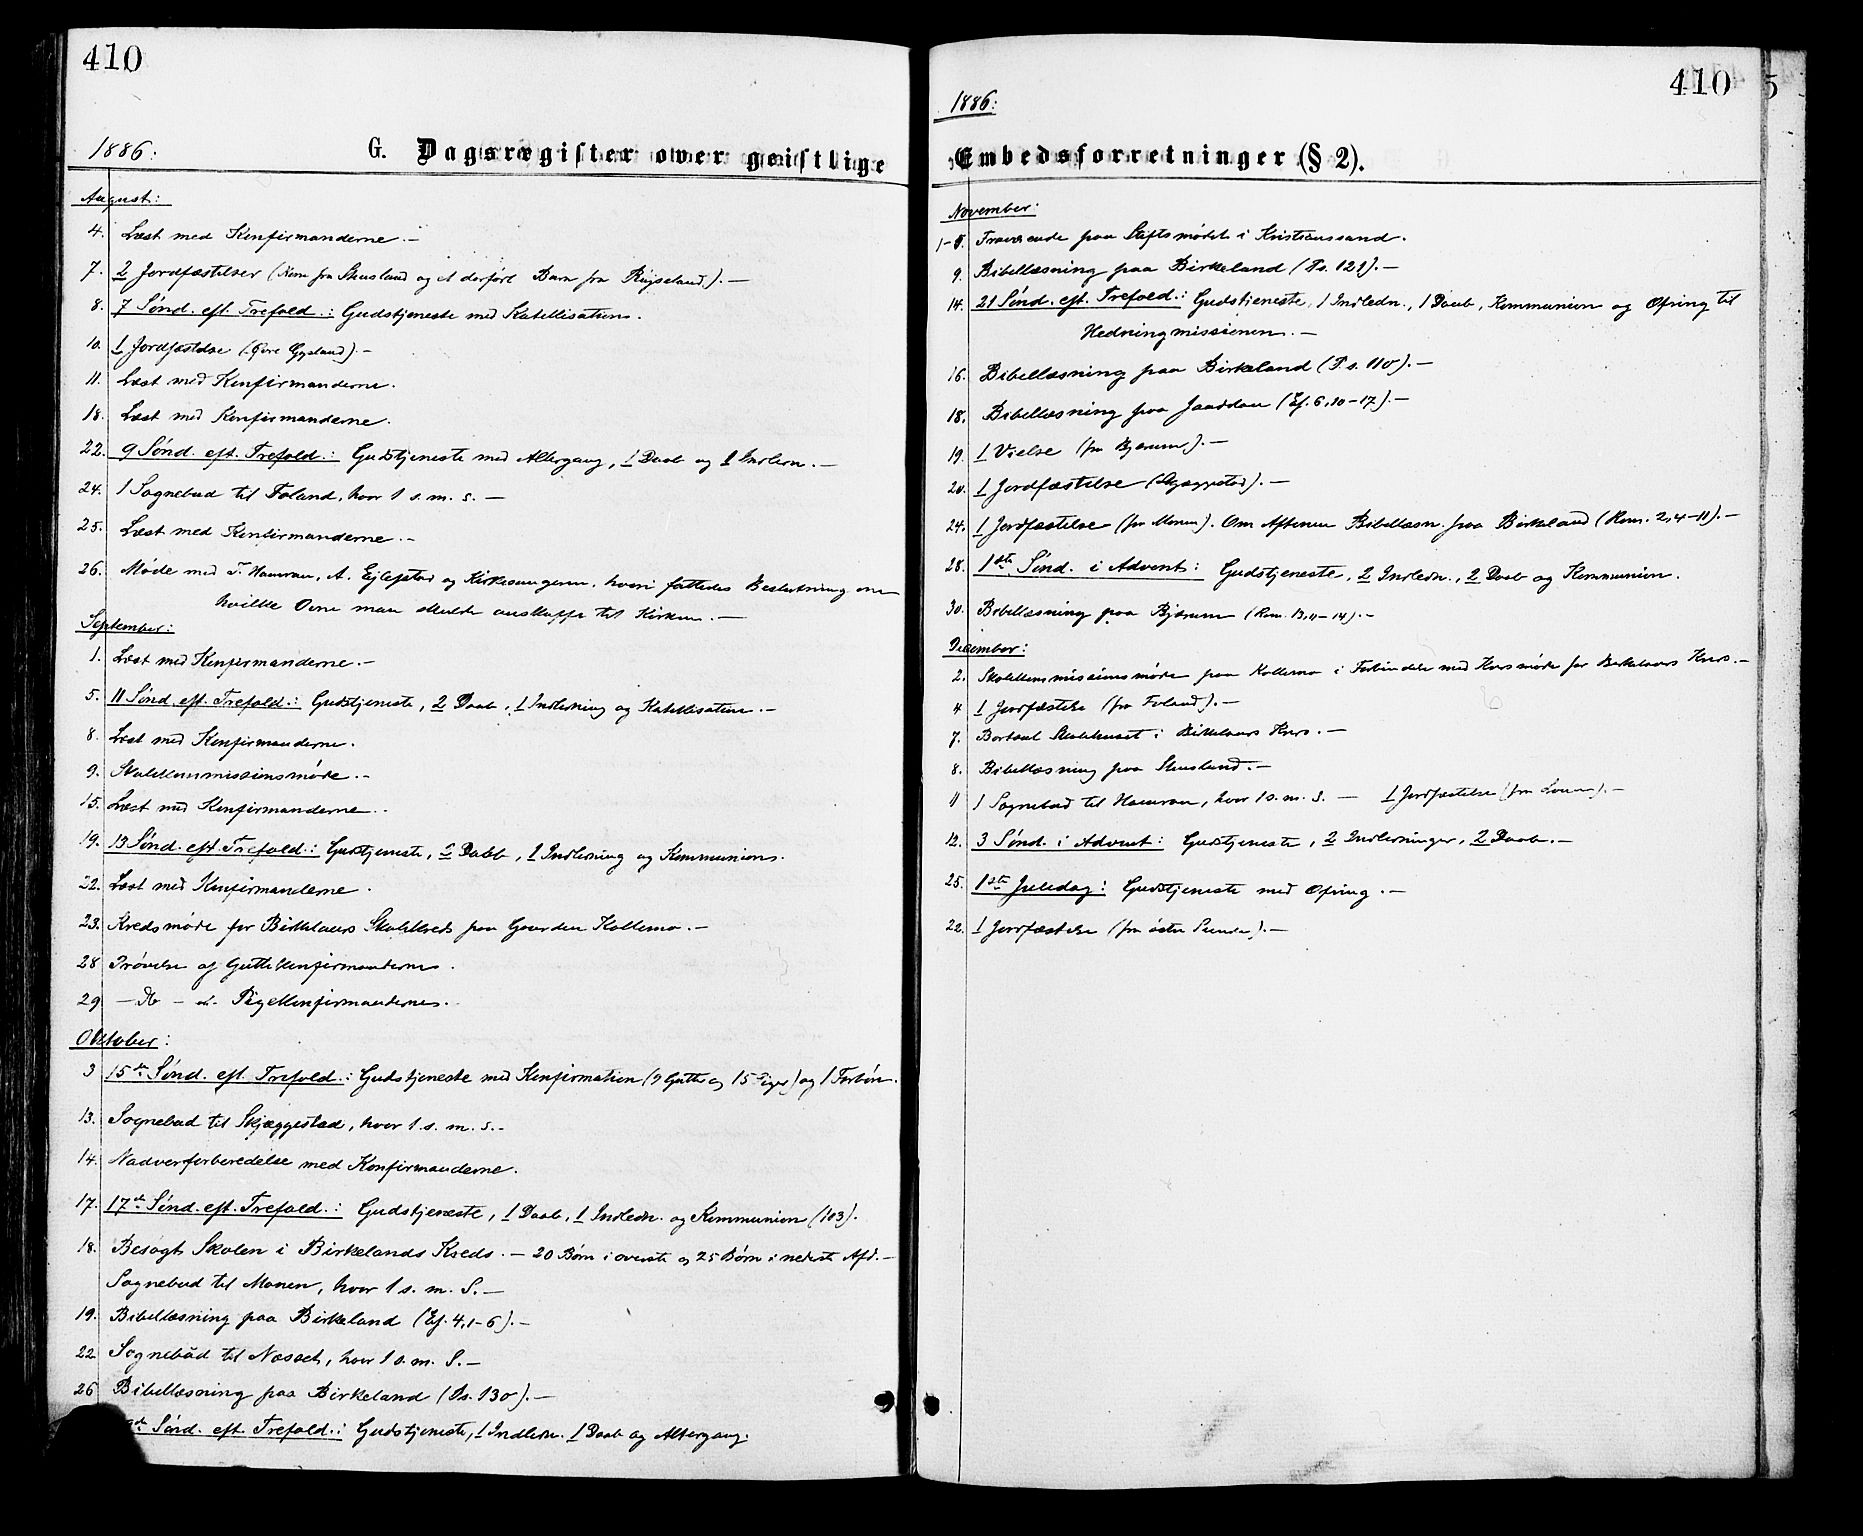 410
1886:
G. Dagsregister over geistlige
August:
4. Læst med Konfirmanderne. —
7. 2 Jordfæstelser ( fra Skusland og 1 derført Barn fra ). —
8. 7 Sønd. eft. Trefold.: Gudstjeneste med Katekisation.
10. 1 Jordfæstelse (Øvre Gysland). —
11. Læst med Konfirmanderne.
18. Læst med Konfirmanderne.
22. 9 Sønd. eft. Trefold.: Gudstjeneste med Altergang, 1 Daab og 1 Indledn. —
24. 1 Sognebud til Foland, hvor 1 s. m. s. —
25. Læst med Konfirmanderne. —
26. Møde med T. Hamran, A. Ejlefstad og Kirkesangeren, hvori fattedes Beslutning om
hvilke Ovne man skulde anskaffe til Kirken. —
September:
1. Læst med Konfirmanderne. —
5. 11 Sønd. eft. Trefold.: Gudstjeneste, 2 Daab, 1 Indledning og Katekisation. —
8. Læst med Konfirmanderne.
9. Skolekommissionsmøde. —
15. Læst med Konfirmanderne.
19. 13 Sønd. eft. Trefold.: Gudstjeneste, 2 Daab, 1 Indledning og Kommunion.
22. Læst med Konfirmanderne.
23. Kredsmøde for Birkelands Skolekreds paa Gaarden Kollemo. —
28 Prøvelse af Guttekonfirmanderne.
29 — Do — af Pigekonfirmanderne.
Oktober:
3 15de Sønd. eft. Trefold.: Gudstjeneste med Konfirmation (9 Gutter og 15 Piger) og 1 Forbøn.
13. Sognebud til Skjæggestad, hvor 1 s. m. s. —
14. Nadverforberedelse med Konfirmanderne.
17. 17de Sønd. eft. Trefold.: Gudstjeneste, 1 Daab, 1 Indledn. og Kommunion (103).
18. Besøgt Skolen i Birkelands Kreds. — 20 Børn i øverste og 25 Børn i nederste Afd. —
Sognebud til Monen, hvor 1 s. m. S. —
19. Bibellæsning paa Birkeland (Ef. 4,1-6). —
22 Sognebud til Næsset, hvor 1 s. m. S. —
26 Bibellæsning paa Birkeland (Ps. 130). —
Sønd. eft. Trefold.: Gudstjeneste, 1 Indledn. 1 Daab og Altergang.
410
5
1886:
Embedsforretninger (§ 2).
November:
1-5. Fraværende paa Stiftsmødet i Kristianssand.
9. Bibellæsning paa Birkeland (Ps. 121). —
14. 21 Sønd. eft. Trefold.: Gudstjeneste, 1 Indledn., 1 Daab, Kommunion og Ofring til
Hedningmissionen. —
16. Bibellæsning paa Birkeland (Ps. 110). —
18. Bibellæsning paa Jaaddan (Ef. 6,10-17). —
19. 1 Vielse (fra Bjærum). —
20. 1 Jordfæstelse (Skjæggestad). —
24. 1 Jordfæstelse (fra Monen). Om Aftenen Bibellæsn. paa Birkeland (Rom. 2,4-11). —
28. 1ste Sønd. i Advent: Gudstjeneste, 2 Indledn., 2 Daab og Kommunion.
30. Bibellæsning paa Bjærum (Rom. 13,11-14). —
December:
2. Skolekommissionsmøde paa Kollemo i Forbindelse med Kredsmøde for Birkelands Kreds. —
4 1 Jordfæstelse (fra Foland). —
7. Skolehuset i Birkelands Kreds. —
8. Bibellæsning paa Skusland. —
11 1 Sognebud til Hamran, hvor 1 s. m. S. — 1 Jordfæstelse (fra ). —
12. 3 Sønd. i Advent: Gudstjeneste, 2 Indledninger, 2 Daab. —
25. 1ste Juledag: Gudstjeneste med Ofring. —
22. 1 Jordfæstelse (fra ). —